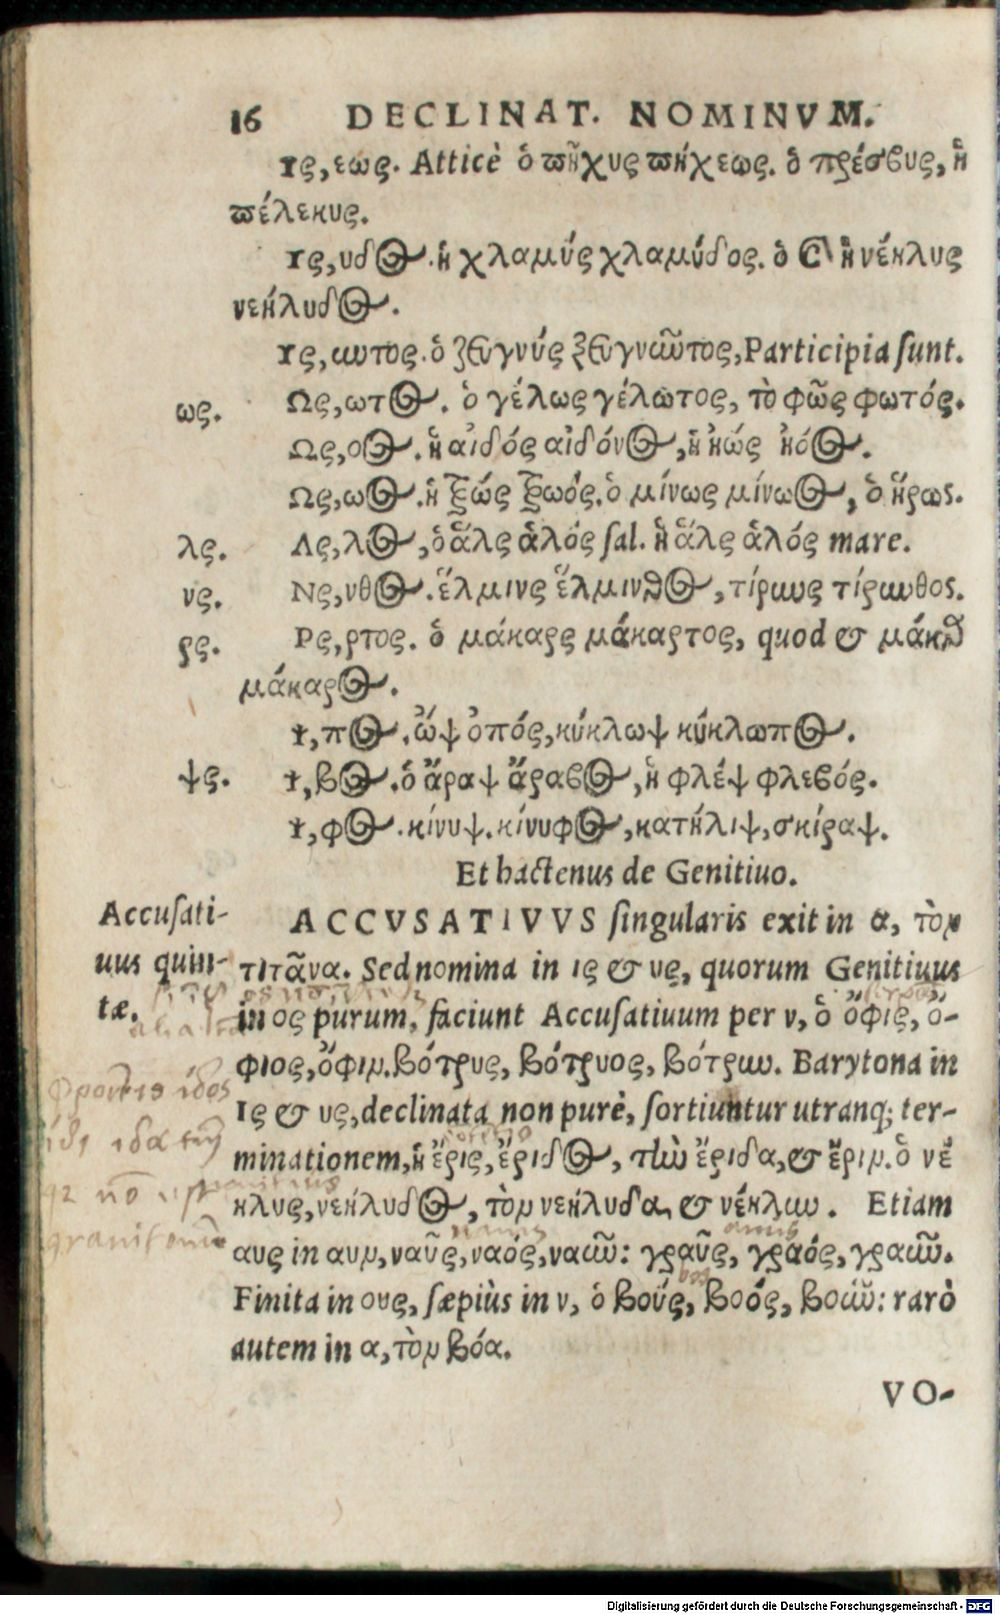 16 DECLINAT. NOMINVM.
Υς, εως. Atticè ὁ πῆχυς πήχεως. ὁ πρέσβυς, ἡ
πέλεκυς.
Υς, υδος. ἡ χλαμύς χλαμύδος. ὁ καὶ ἡ νέηλυς
νεήλυδος.
Υς, υντος. ὁ ζευγνύς ζευγνῦντος, Participia sunt.
ως. Ως, ωτος. ὁ γέλως γέλωτος, τὸ φῶς φωτός.
Ως, οος. ἡ αἰδός αἰδόνος, ἡ ἠώς ἠόος.
Ως, ωος. ἡ ξώς ξωός. ὁ μίνως μίνωος, ὁ ἥρως.
λς. Λς, λος, ὁ ἅλς ἁλός sal. ἡ ἅλς ἁλός mare.
νς. Νς, νθος. ἕλμινς ἕλμινθος, τίρυνς τίρυνθος.
ρς. Ρς, ρτος. ὁ μάκαρς μάκαρτος, quod & μάκαρ
μάκαρος.
Ψ, πος. ὤψ ὀπός, κύκλωψ κύκλωπος.
ψς. Ψ, βος. ὁ ἄραψ ἄραβος, ἡ φλέψ φλεβός.
Ψ, φος. κίνυψ. κίνυφος, κατήλιψ, σκίραψ.
Et hactenus de Genitiuo.
Accusati- ACCVSATIVVS singularis exit in α, τὸν
uus quin- τιτᾶνα. Sed nomina in ις & υς, quorum Genitiuus
tæ. in ος purum, faciunt Accusatiuum per ν, ὁ ὄφις, ὄ-
φιος, ὄφιν. βότρυς, βότρυος, βότρυν. Barytona in
Ις & υς, declinata non purè, sortiuntur utranq; ter-
minationem, ἡ ἔρις, ἔριδος, τὴν ἔριδα, & ἔριν. ὁ νέ
ηλυς, νεήλυδος, τὸν νεήλυδα, & νέηλυν. Etiam
αυς in αυν, ναῦς, ναός, ναῦν: γραῦς, γραός, γραῦν.
Finita in ους, sæpiùs in ν, ὁ βούς, βοός, βοῦν: rarò
autem in α, τὸν βόα.
VO-
Digitalisierung gefördert durch die Deutsche Forschungsgemeinschaft - DFG